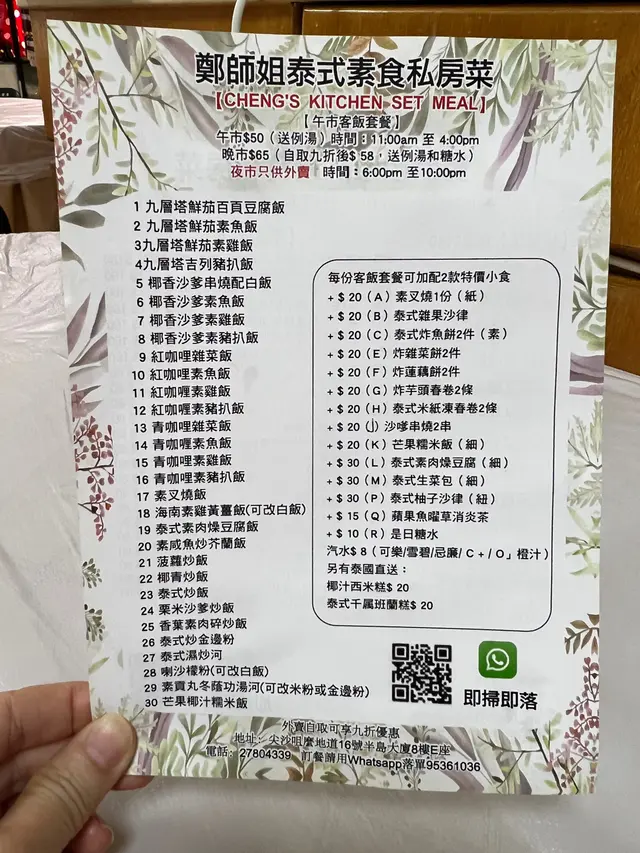 鄭師姐泰式素食私房菜
【CHENG'S KITCHEN SET MEAL】
【午市客飯套餐】
午市$50（送例湯）時間：11:00am 至 4:00pm
晚市$65（自取九折後$ 58，送例湯和糖水）
夜市只供外賣 時間：6:00pm 至10:00pm
1 九層塔鮮茄百頁豆腐飯
2 九層塔鮮茄素魚飯
3九層塔鮮茄素雞飯
4九層塔吉列豬扒飯
5 椰香沙爹串燒配白飯
6 椰香沙爹素魚飯
7 椰香沙爹素雞飯
8 椰香沙爹素豬扒飯
9 紅咖哩雜菜飯
10 紅咖哩素魚飯
11 紅咖喱素雞飯
12 紅咖喱素豬扒飯
13 青咖哩雜菜飯
14 青咖喱素魚飯
15 青咖哩素雞飯
16 青咖哩素豬扒飯
17 素叉燒飯
18 海南素雞黃薑飯(可改白飯)
19 泰式素肉燥豆腐飯
20 素咸魚炒芥蘭飯
21 菠蘿炒飯
22 椰青炒飯
23 泰式炒飯
24 栗米沙爹炒飯
25 香葉素肉碎炒飯
26 泰式炒金邊粉
27 泰式濕炒河
28 喇沙檬粉(可改白飯)
29 素貢丸冬蔭功湯河(可改米粉或金邊粉)
30 芒果椰汁糯米飯
每份客飯套餐可加配2款特價小食
+ $ 20（A）素叉燒1份（紙）
+ $ 20（B）泰式雜果沙律
+ $ 20（C）泰式炸魚餅2件（素）
+ $ 20（E）炸雜菜餅2件
+ $ 20（F）炸蓮藕餅2件
+ $ 20（G）炸芋頭春卷2條
+ $ 20（H）泰式米紙凍春卷2條
+ $ 20（J）沙嗲串燒2串
+ $ 20（K）芒果糯米飯（細）
+ $ 30（L）泰式素肉燥豆腐（細）
+ $ 30（M）泰式生菜包（細）
+ $ 30（P）泰式柚子沙律（紐）
+ $ 15（Q）蘋果魚曜草消炎茶
+ $ 10（R）是日糖水
汽水$ 8（可樂/雪碧/忌廉/ C + / O」橙汁）
另有泰國直送：
椰汁西米糕$ 20
泰式千属班蘭糕$ 20
即掃即落
外賣自取可享九折優惠
地址：尖沙咀麼地道16號半島大廈8樓E座
電話：27804339 訂餐請用Whatsapp落單95361036